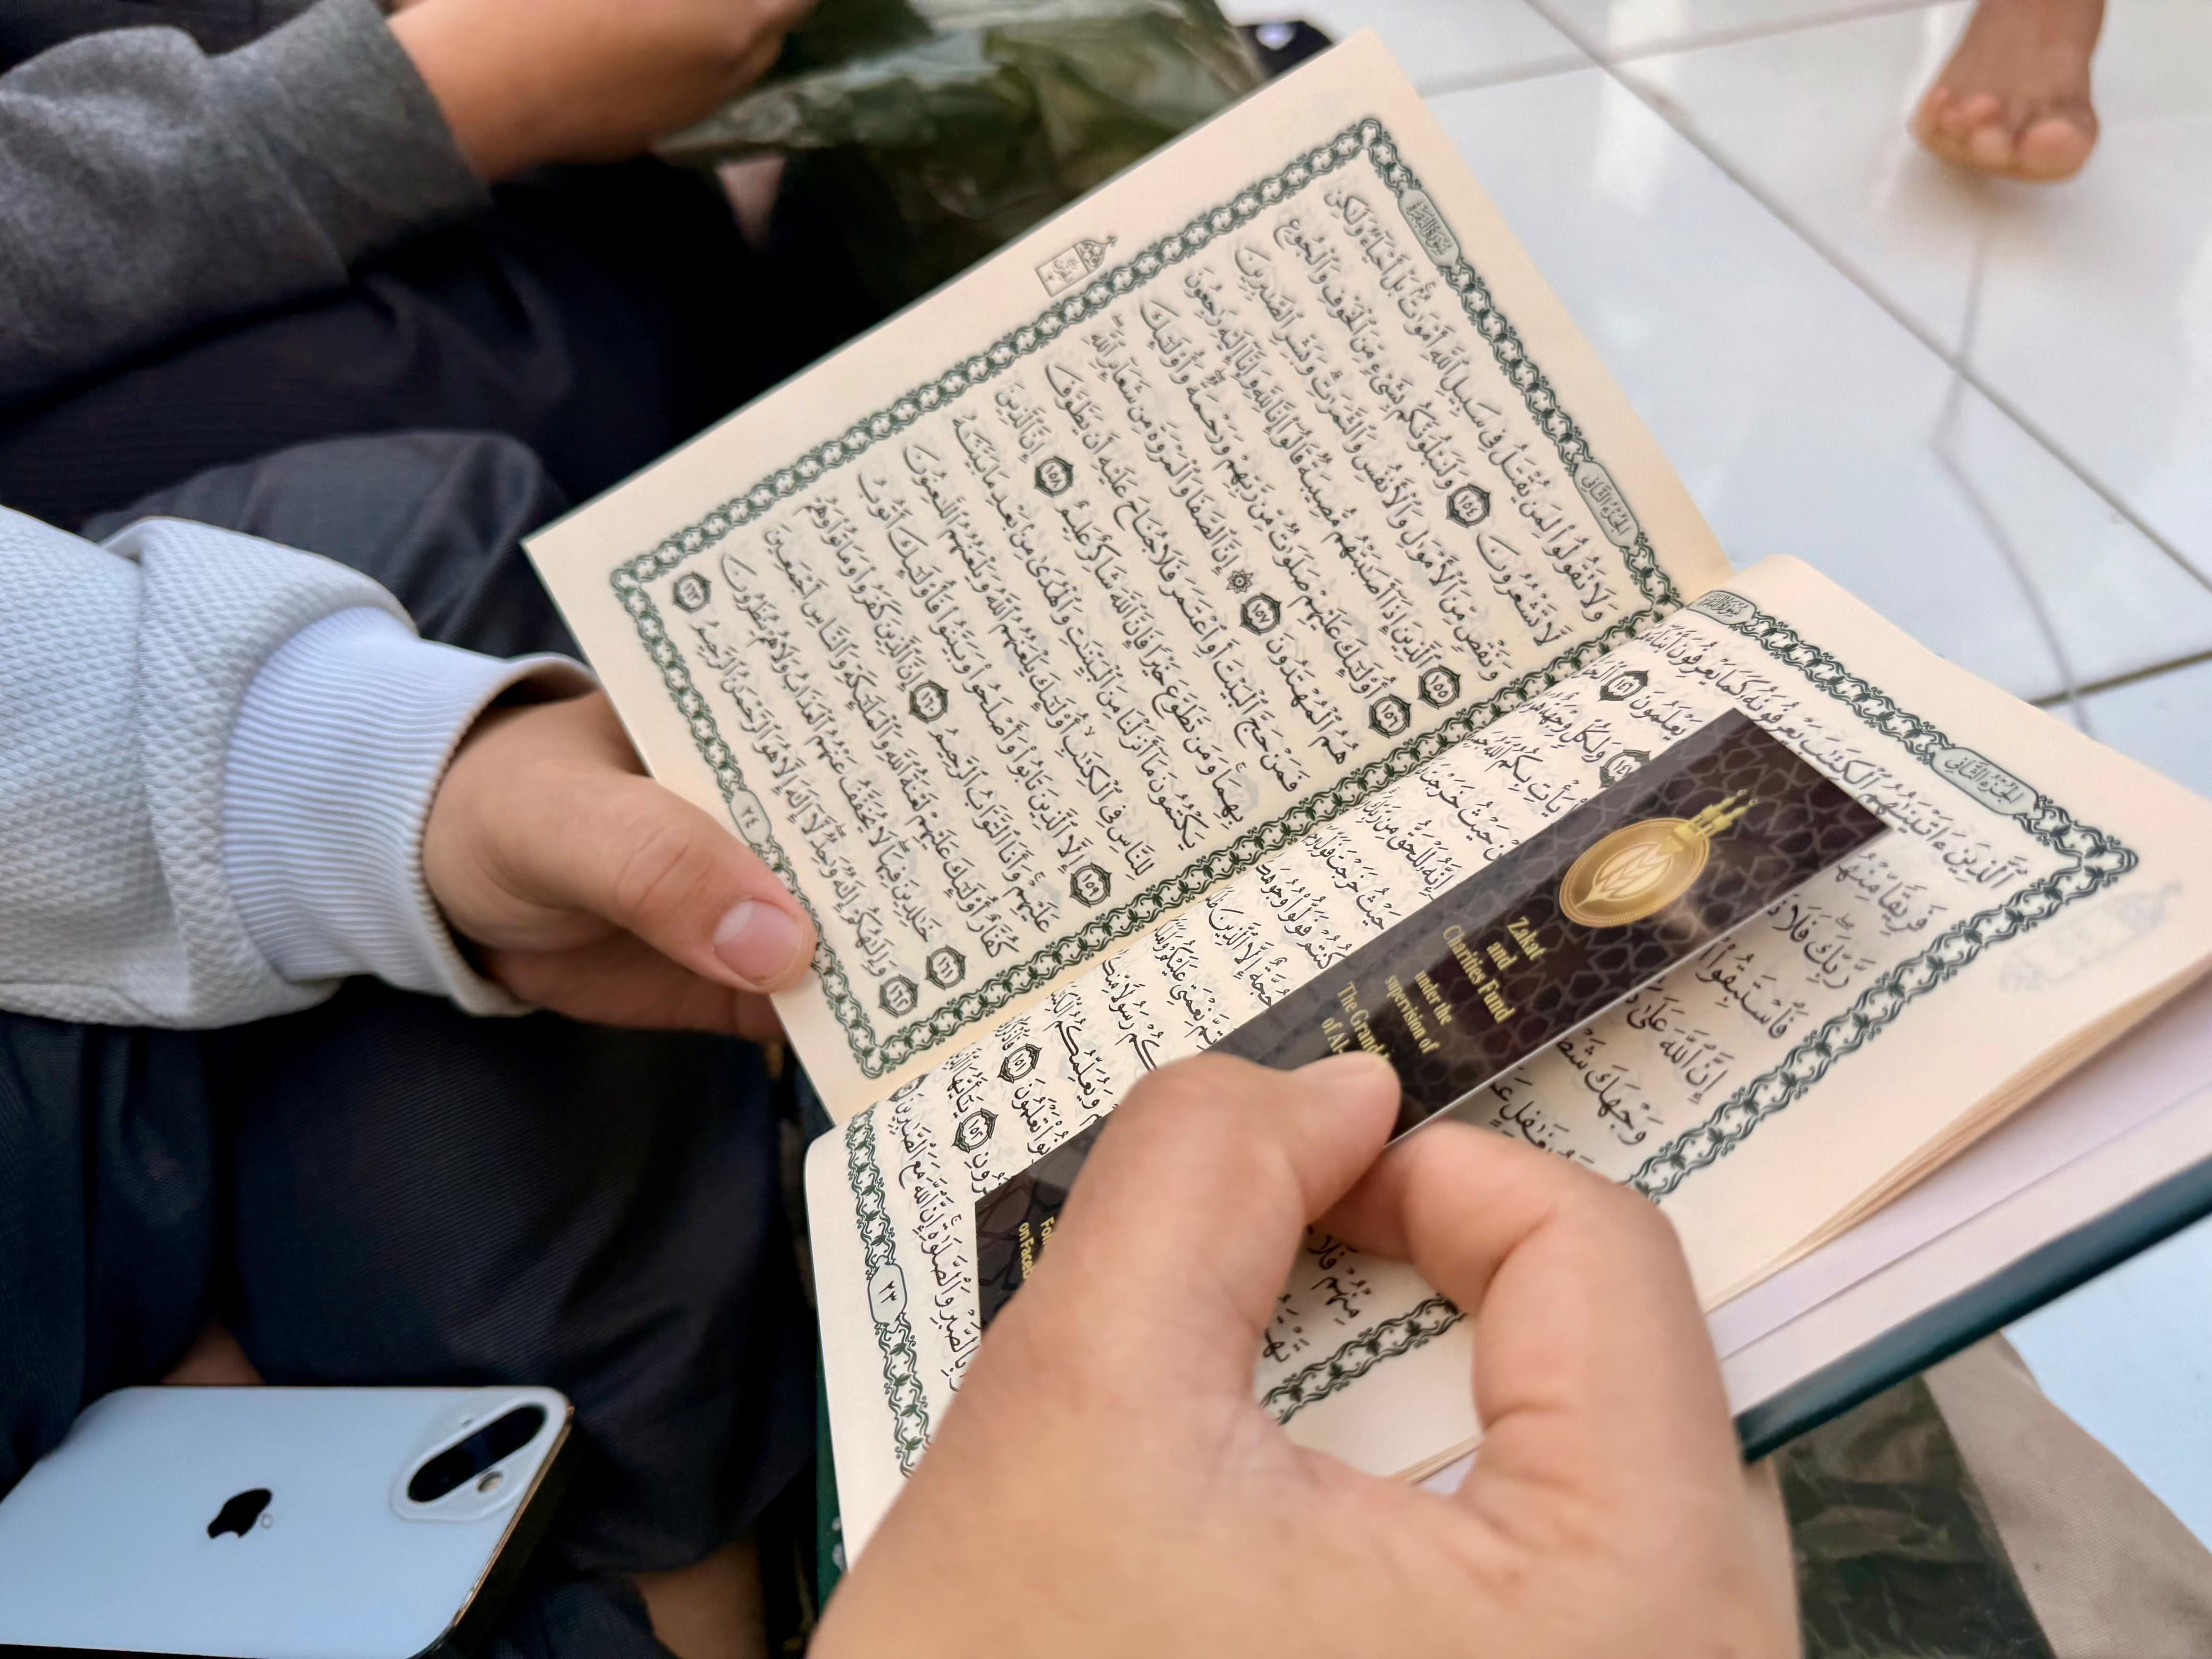 الجزء الثاني
سورة البقرة
ٱلَّذِينَ ءَاتَيْنَٰهُمُ ٱلْكِتَٰبَ يَعْرِفُونَهُۥ كَمَا يَعْرِفُونَ أَبْنَآءَهُمْ
فَرِيقًا مِّنْهُمْ يَعْلَمُونَ ١٤٦
رَّبِّكَ فَلَا وَلِكُلٍّ وِجْهَةٌ هُوَ
فَٱسْتَبِقُوا۟ يَأْتِ بِكُمُ ٱللَّهُ
إِنَّ ٱللَّهَ عَلَىٰ حَيْثُ خَرَجْتَ
وَجْهَكَ شَطْرَ
حَيْثُ خَرَجْتَ فَوَلِّ
كُنتُمْ فَوَلُّوا۟ وُجُوهَكُمْ
حُجَّةٌ إِلَّا ٱلَّذِينَ
مِنْهُمْ فَلَا نِعْمَتِى عَلَيْكُمْ
رَسُولًا مِّنكُمْ
وَيُعَلِّمُكُمُ
تَعْلَمُونَ ١٥١
١٥٢ يَٰٓأَيُّهَا
بِٱلصَّبْرِ وَٱلصَّلَوٰةِ ۚ إِنَّ ٱللَّهَ مَعَ ٱلصَّٰبِرِينَ
٢٣
Zakat
and
Charities Fund
under the
supervision of
The Grand
of Al-
on Faceb
الجزء الثاني
سورة البقرة
وَلَا تَقُولُوا۟ لِمَن يُقْتَلُ فِى سَبِيلِ ٱللَّهِ أَمْوَٰتٌۢ ۚ بَلْ أَحْيَآءٌ وَلَٰكِن
لَّا تَشْعُرُونَ ١٥٤ وَلَنَبْلُوَنَّكُم بِشَىْءٍ مِّنَ ٱلْخَوْفِ وَٱلْجُوعِ
وَنَقْصٍ مِّنَ ٱلْأَمْوَٰلِ وَٱلْأَنفُسِ وَٱلثَّمَرَٰتِ ۗ وَبَشِّرِ ٱلصَّٰبِرِينَ
١٥٥ ٱلَّذِينَ إِذَآ أَصَٰبَتْهُم مُّصِيبَةٌ قَالُوٓا۟ إِنَّا لِلَّهِ وَإِنَّآ إِلَيْهِ رَٰجِعُونَ
١٥٦ أُو۟لَٰٓئِكَ عَلَيْهِمْ صَلَوَٰتٌ مِّن رَّبِّهِمْ وَرَحْمَةٌ ۖ وَأُو۟لَٰٓئِكَ
هُمُ ٱلْمُهْتَدُونَ ١٥٧ ۞ إِنَّ ٱلصَّفَا وَٱلْمَرْوَةَ مِن شَعَآئِرِ ٱللَّهِ ۖ
فَمَنْ حَجَّ ٱلْبَيْتَ أَوِ ٱعْتَمَرَ فَلَا جُنَاحَ عَلَيْهِ أَن يَطَّوَّفَ
بِهِمَا ۚ وَمَن تَطَوَّعَ خَيْرًا فَإِنَّ ٱللَّهَ شَاكِرٌ عَلِيمٌ ١٥٨ إِنَّ ٱلَّذِينَ
يَكْتُمُونَ مَآ أَنزَلْنَا مِنَ ٱلْبَيِّنَٰتِ وَٱلْهُدَىٰ مِنۢ بَعْدِ مَا بَيَّنَّٰهُ
لِلنَّاسِ فِى ٱلْكِتَٰبِ ۙ أُو۟لَٰٓئِكَ يَلْعَنُهُمُ ٱللَّهُ وَيَلْعَنُهُمُ ٱللَّٰعِنُونَ
١٥٩ إِلَّا ٱلَّذِينَ تَابُوا۟ وَأَصْلَحُوا۟ وَبَيَّنُوا۟ فَأُو۟لَٰٓئِكَ أَتُوبُ
عَلَيْهِمْ ۚ وَأَنَا ٱلتَّوَّابُ ٱلرَّحِيمُ ١٦٠ إِنَّ ٱلَّذِينَ كَفَرُوا۟ وَمَاتُوا۟ وَهُمْ
كُفَّارٌ أُو۟لَٰٓئِكَ عَلَيْهِمْ لَعْنَةُ ٱللَّهِ وَٱلْمَلَٰٓئِكَةِ وَٱلنَّاسِ أَجْمَعِينَ
١٦١ خَٰلِدِينَ فِيهَا ۖ لَا يُخَفَّفُ عَنْهُمُ ٱلْعَذَابُ وَلَا هُمْ يُنظَرُونَ
١٦٢ وَإِلَٰهُكُمْ إِلَٰهٌ وَٰحِدٌ ۖ لَّآ إِلَٰهَ إِلَّا هُوَ ٱلرَّحْمَٰنُ ٱلرَّحِيمُ ١٦٣
٢٤